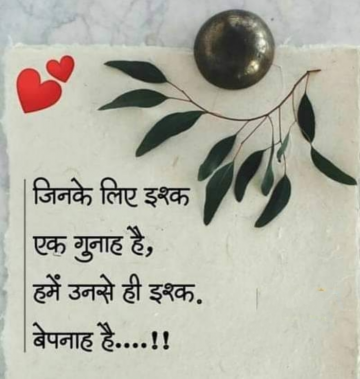 जिनके लिए इश्क
एक गुनाह है,
हमें उनसे ही इश्क.
बेपनाह है....!!